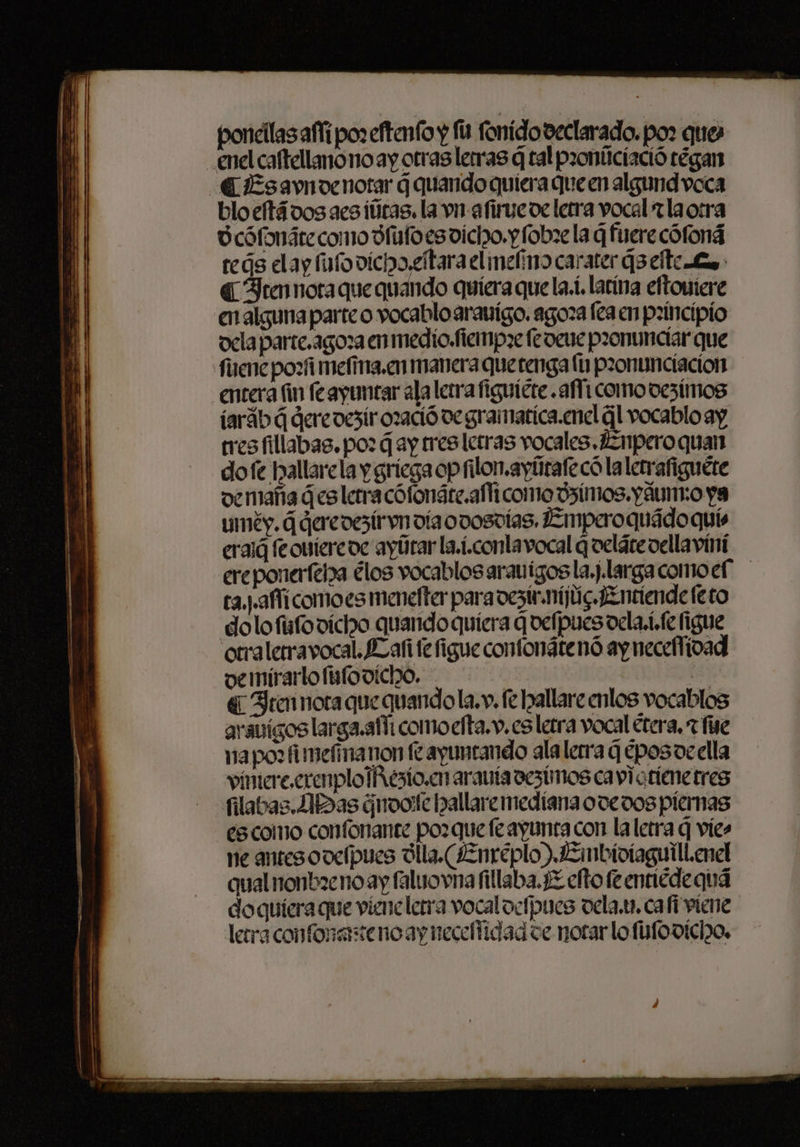 ponellas assi por estenso y su sonido declarado. por que
enel castellano no ay otras letras q̃ tal pronũciació tẽgan
¶ Es avn de notar q̃ quando quiera que en algund voca
blo está dos aes iũtas. la vn a sirue de letra vocal ⁊ la otra
d̃ cõsonãte como d̃ suso es dicho. y sobre la q̃ fuere cõsonã
te q̃s el ay suso dicho. estara el mesmo carater q̃s este
¶ Iten nota que quando quiera que la .i. latina estouiere
en alguna parte o vocablo arauigo. agora sea en principio
dela parte. agora en medio. siempre se deue pronunciar que
suene por si mesma. en manera que tenga su pronunciacion
entera sin se ayuntar ala letra siguiẽte. assi como dezimos
iarãb q̃ q̃ere dezir oració de gramatica. enel q̃l vocablo ay
tres sillabas. por q̃ ay tres letras vocales. Enpero quan
do se hallare la y griega op silon. ayũtase cõ la letra siguẽte
de mañа q̃ es letra cõsonãte. assi como d̃zimos. yãum: o ya
umẽy. q̃ q̃ere dezir vn dia o dos dias. Empero quãdo qui
eraq̃ se ouiere de ayũtar la .i. con la vocal q̃ delãte della viní
ere ponerseha ẽlos vocablos arauigos la .j. larga como es
ta .j. assi como es menester para dezir. nijũç. Entiende se to
do lo suso dicho quando quiera q̃ despues dela .i. se sigue
otra letra vocal. E asi se sigue consonãte nõ ay necessidad
de mirar lo suso dicho.
¶ Iten nota que quando la .v. se hallare enlos vocablos
arauigos larga. assi como esta .v. es letra vocal ẽtera. ⁊ sue
na por si mesma non se ayuntando ala letra q̃ ẽpos de ella
viniere. exenplo Rézio. en arauia dezimos cavi q̃ tiene tres
silabas. Mas q̃ndo se hallare mediana o de dos piernas
es como consonante por que se ayunta con la letra q̃ vie
ne antes o despues d̃lla. (Enxẽplo). Enbidia guill. enel
qual nonbre no ay saluo vna sillaba. E esto se entiẽde quã
do quiera que viene letra vocal despues dela .u. ca si viene
letra consonante no ay necessidad de notar lo suso dicho.